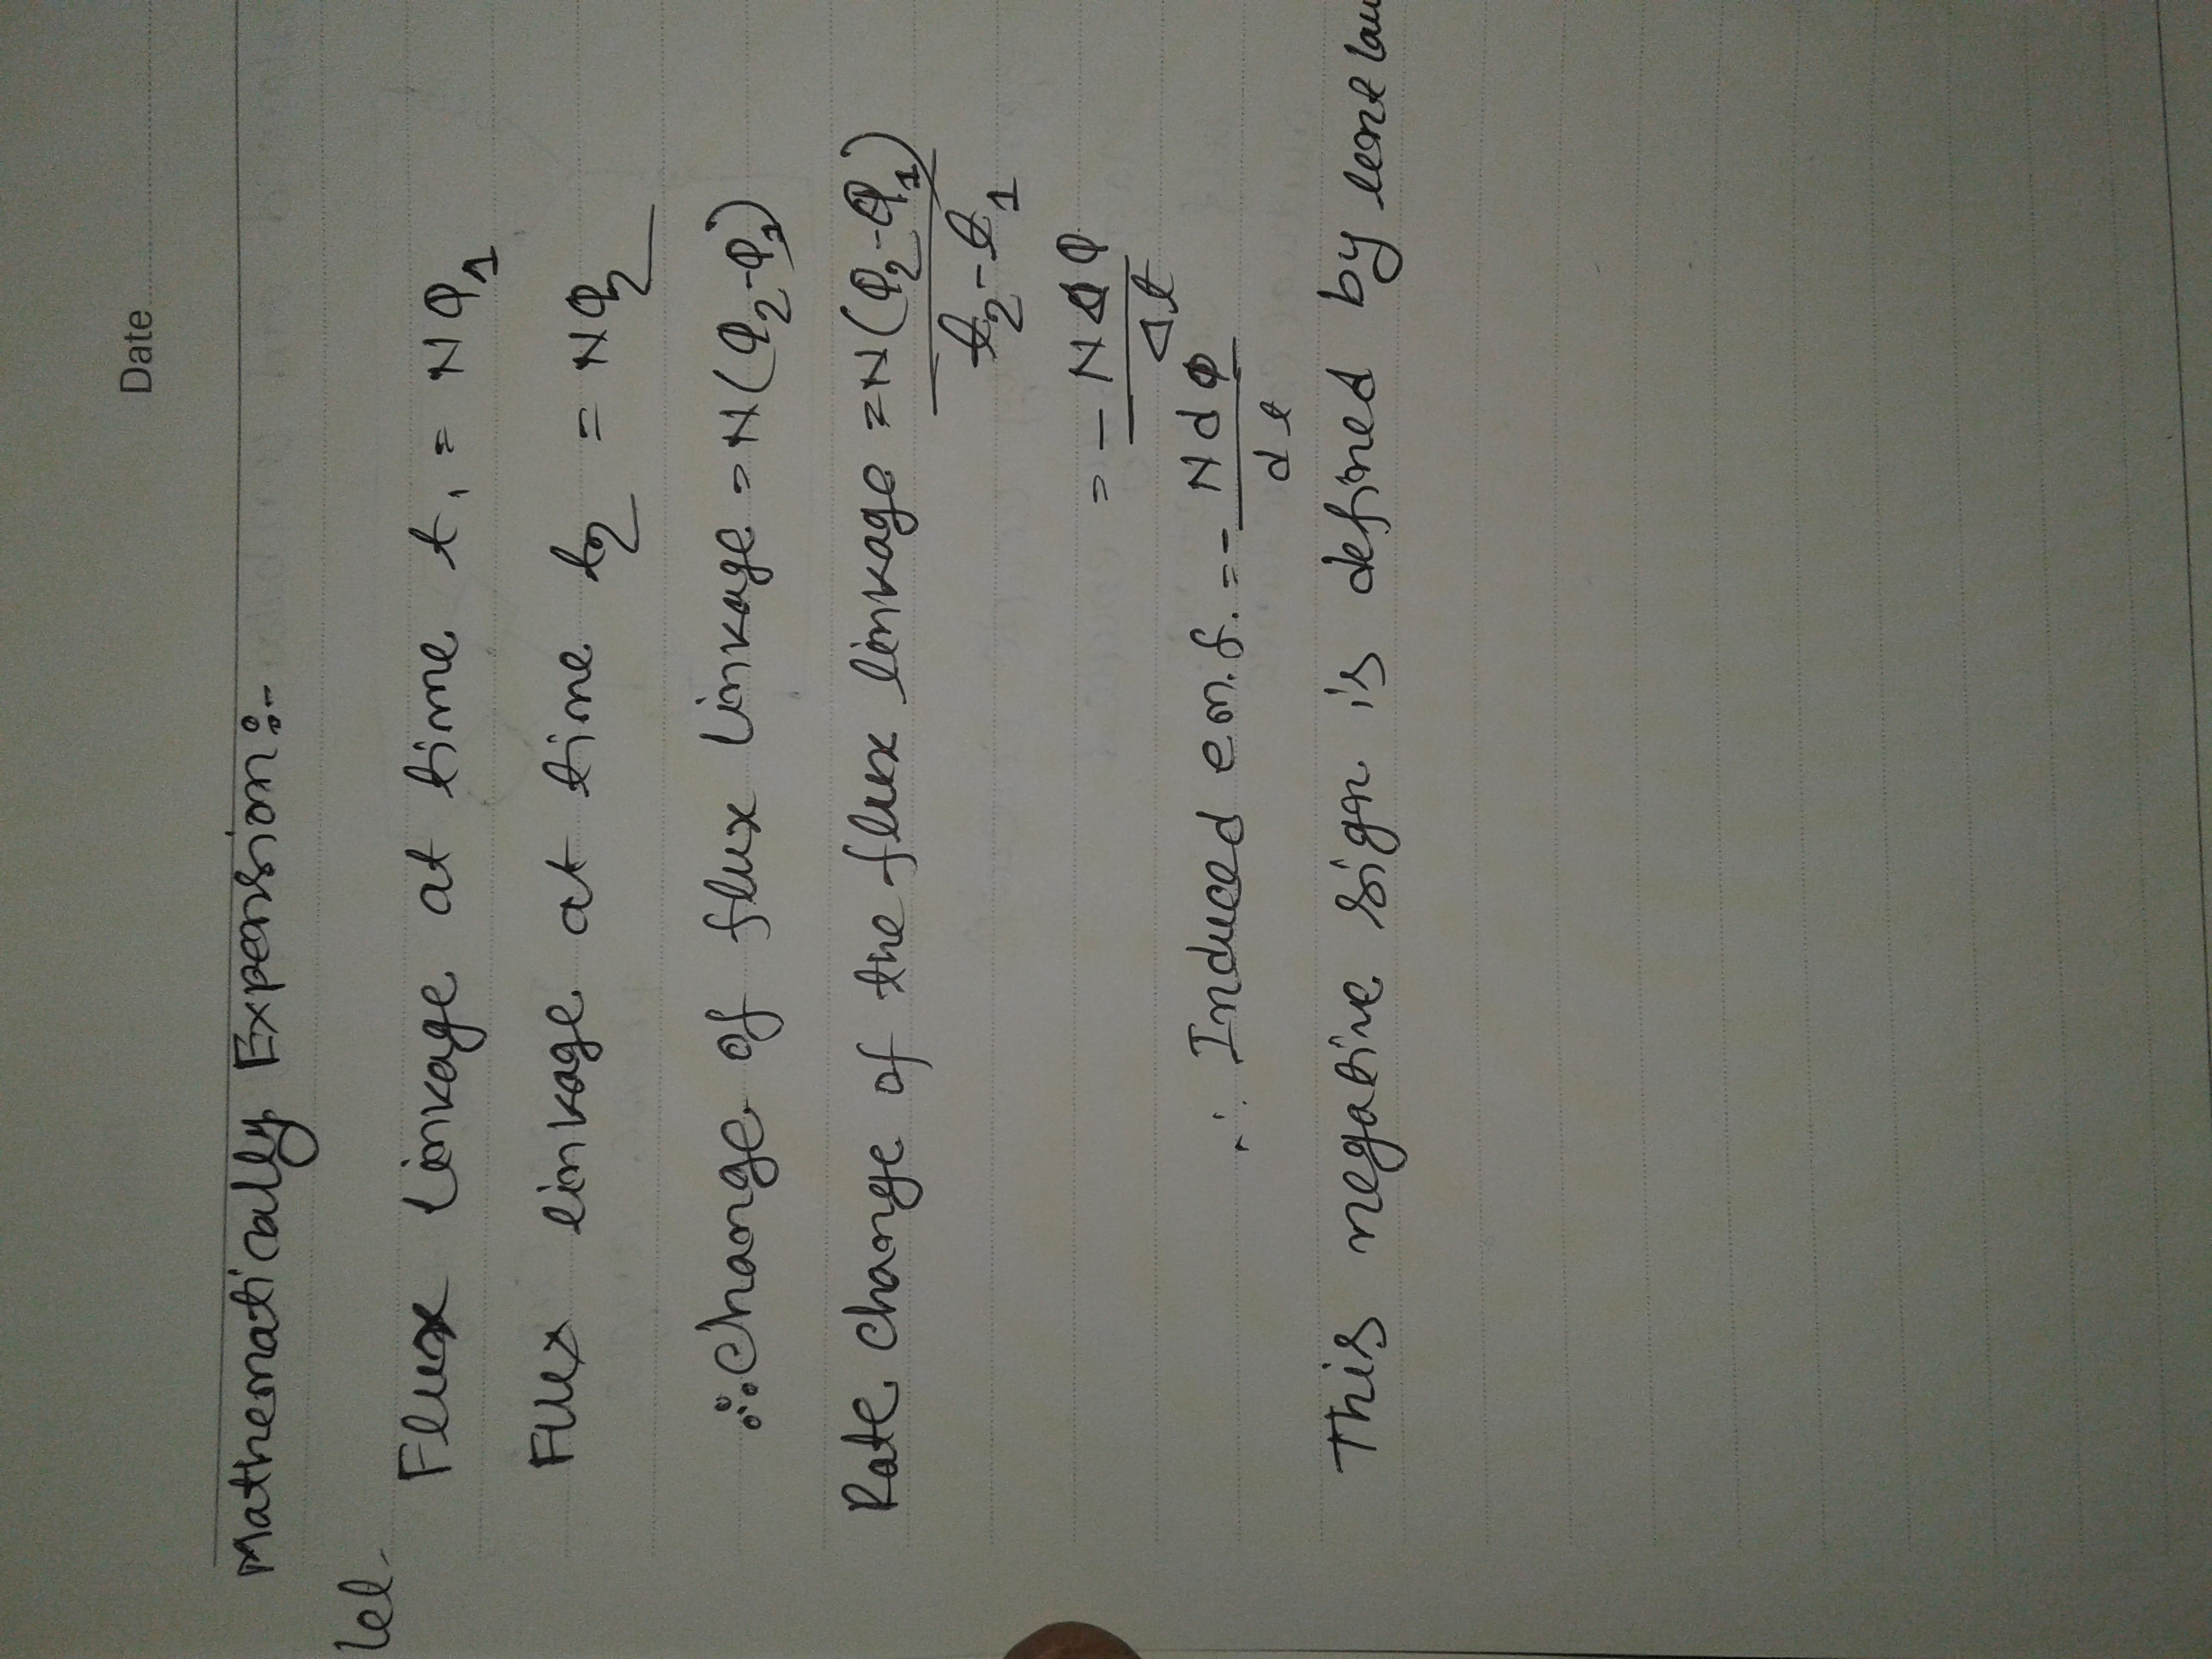 Date
Mathematically Expension:-
let
Flux linkage at time t₁ = NΦ₁
Flux linkage at time t₂ = NΦ₂
∴ Change of flux linkage = N(Φ₂-Φ₁)
Rate change of the flux linkage = N(Φ₂-Φ₁)
t₂-t₁
= - NΔΦ
Δt
∴ Induced e.m.f. = - NdΦ
dt
This negative sign is defined by lenz law